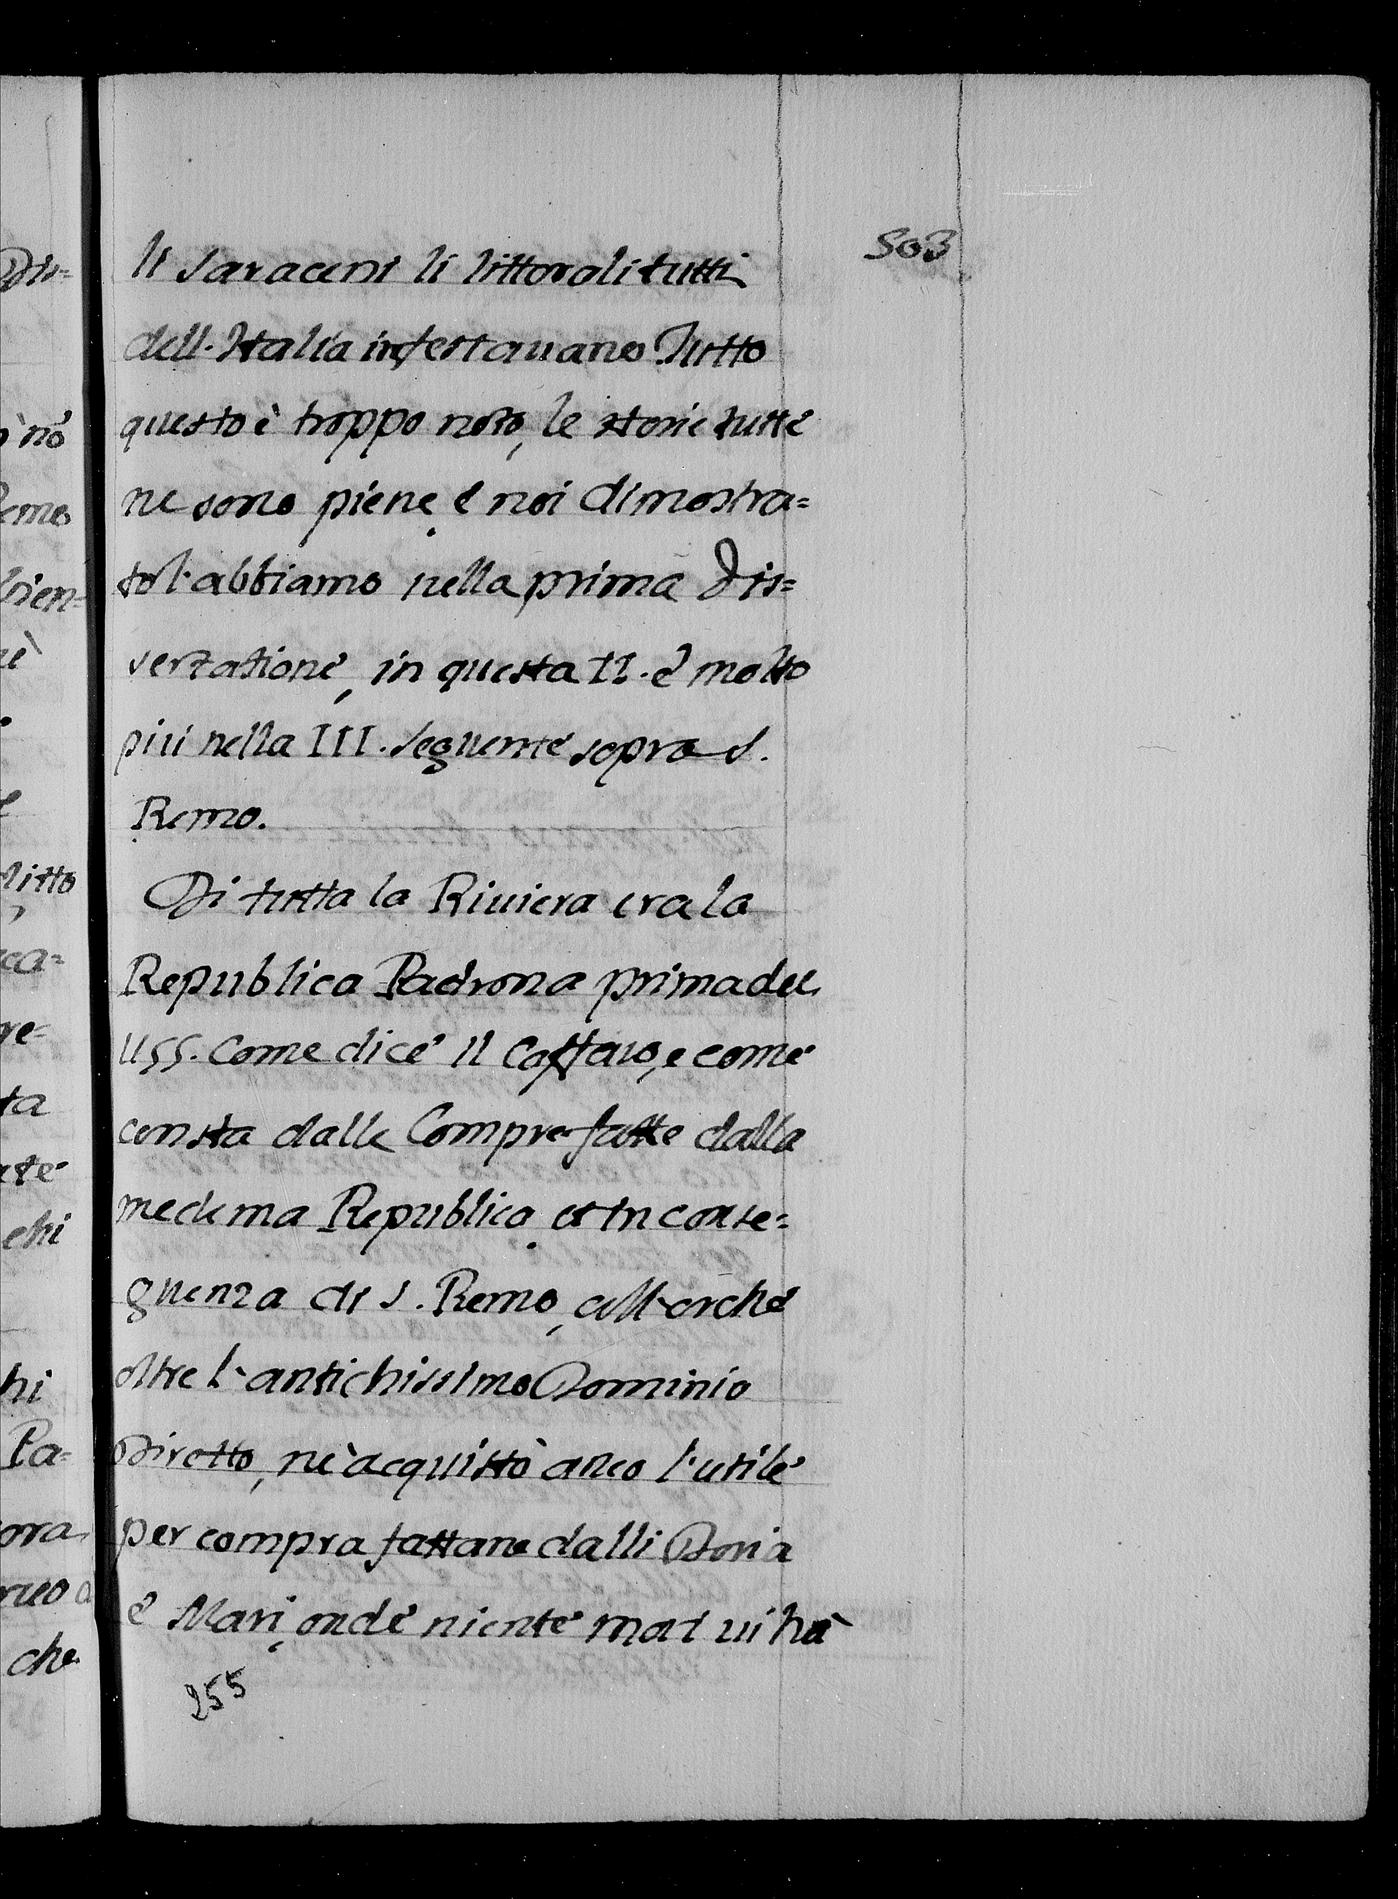 503
li Saraceni li littorali tutti
dell'Italia infestauano Tutto
questo è troppo noto, le storie tutte
ne sono piene, e noi dimostra=
to l'abbiamo nella prima Dis=
sertatione, in questa II. e molto
più nella III. seguente sopra S.
Remo.
Di tutta la Riuiera era la
Republica Padrona prima del
1155. Come dice il Caffaro, e come
consta dalle Compre fatte dalla
medema Republica, et in conse=
guenza di S. Remo, all'orche
oltre l'antichissimo Dominio
Diretto, nè acquistò anco l'utile
per compra fattane dalli Doria
e Mari, onde niente mai ui hà
255
Dis=
nò
Remo
che